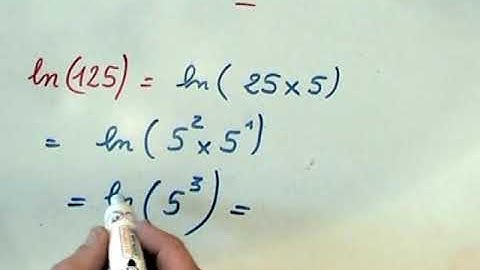 ln(125) = ln(25×5)
= ln(5²×5¹)
= ln(5³) =